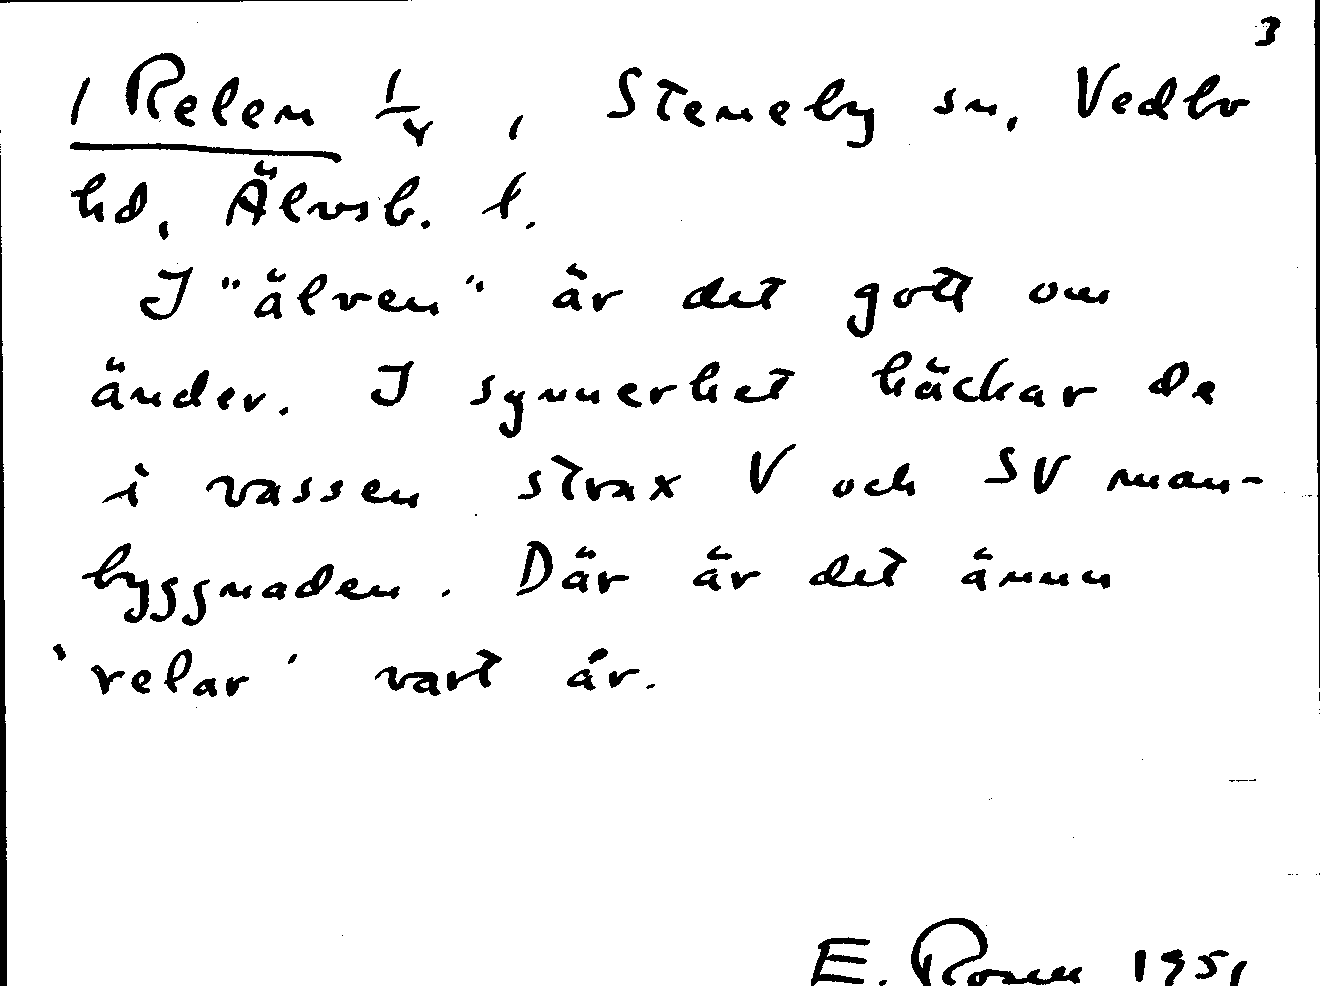 3
1 Relen 1/4, Steneby sn, Vedbo
hd, Älvsb. l.
I "älven" är det gott om
änder. I synnerhet häckar de
i vassen strax V och SV man-
byggnaden. Där är det ännu
'relar' vart år.
E. Rosen 1951